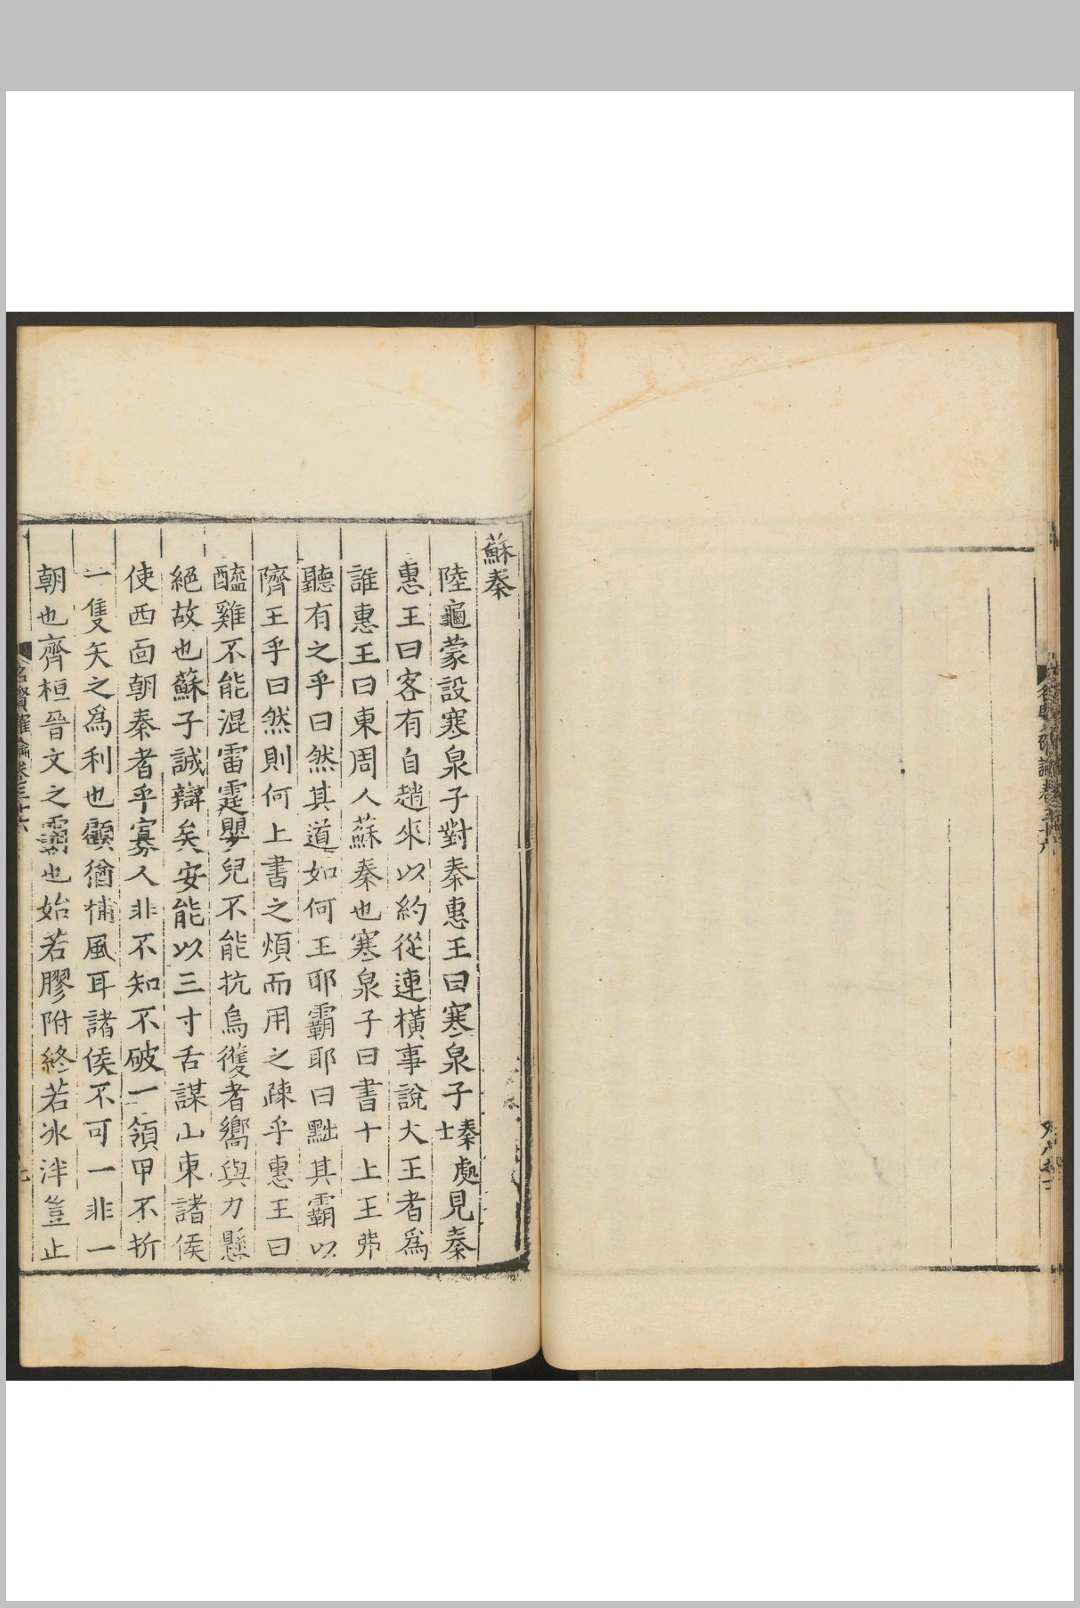 蘇秦
陸龜蒙設寒泉子對秦惠王曰寒泉子秦處士見秦
惠王曰客有自趙來以約從連橫事說大王者爲
誰惠王曰東周人蘇秦也寒泉子曰書十上王弗
聽有之乎曰然其道如何王耶霸耶曰黜其霸以
隮王乎曰然則何上書之煩而用之疎乎惠王曰
醯雞不能混雷霆嬰兒不能抗烏獲者嚮與力懸
絕故也蘇子誠辯矣安能以三寸舌謀山東諸侯
使西面朝秦者乎寡人非不知不破一領甲不折
一隻矢之爲利也顧猶捕風耳諸侯不可一非一
朝也齊桓晉文之霸也始若膠附終若冰泮豈止